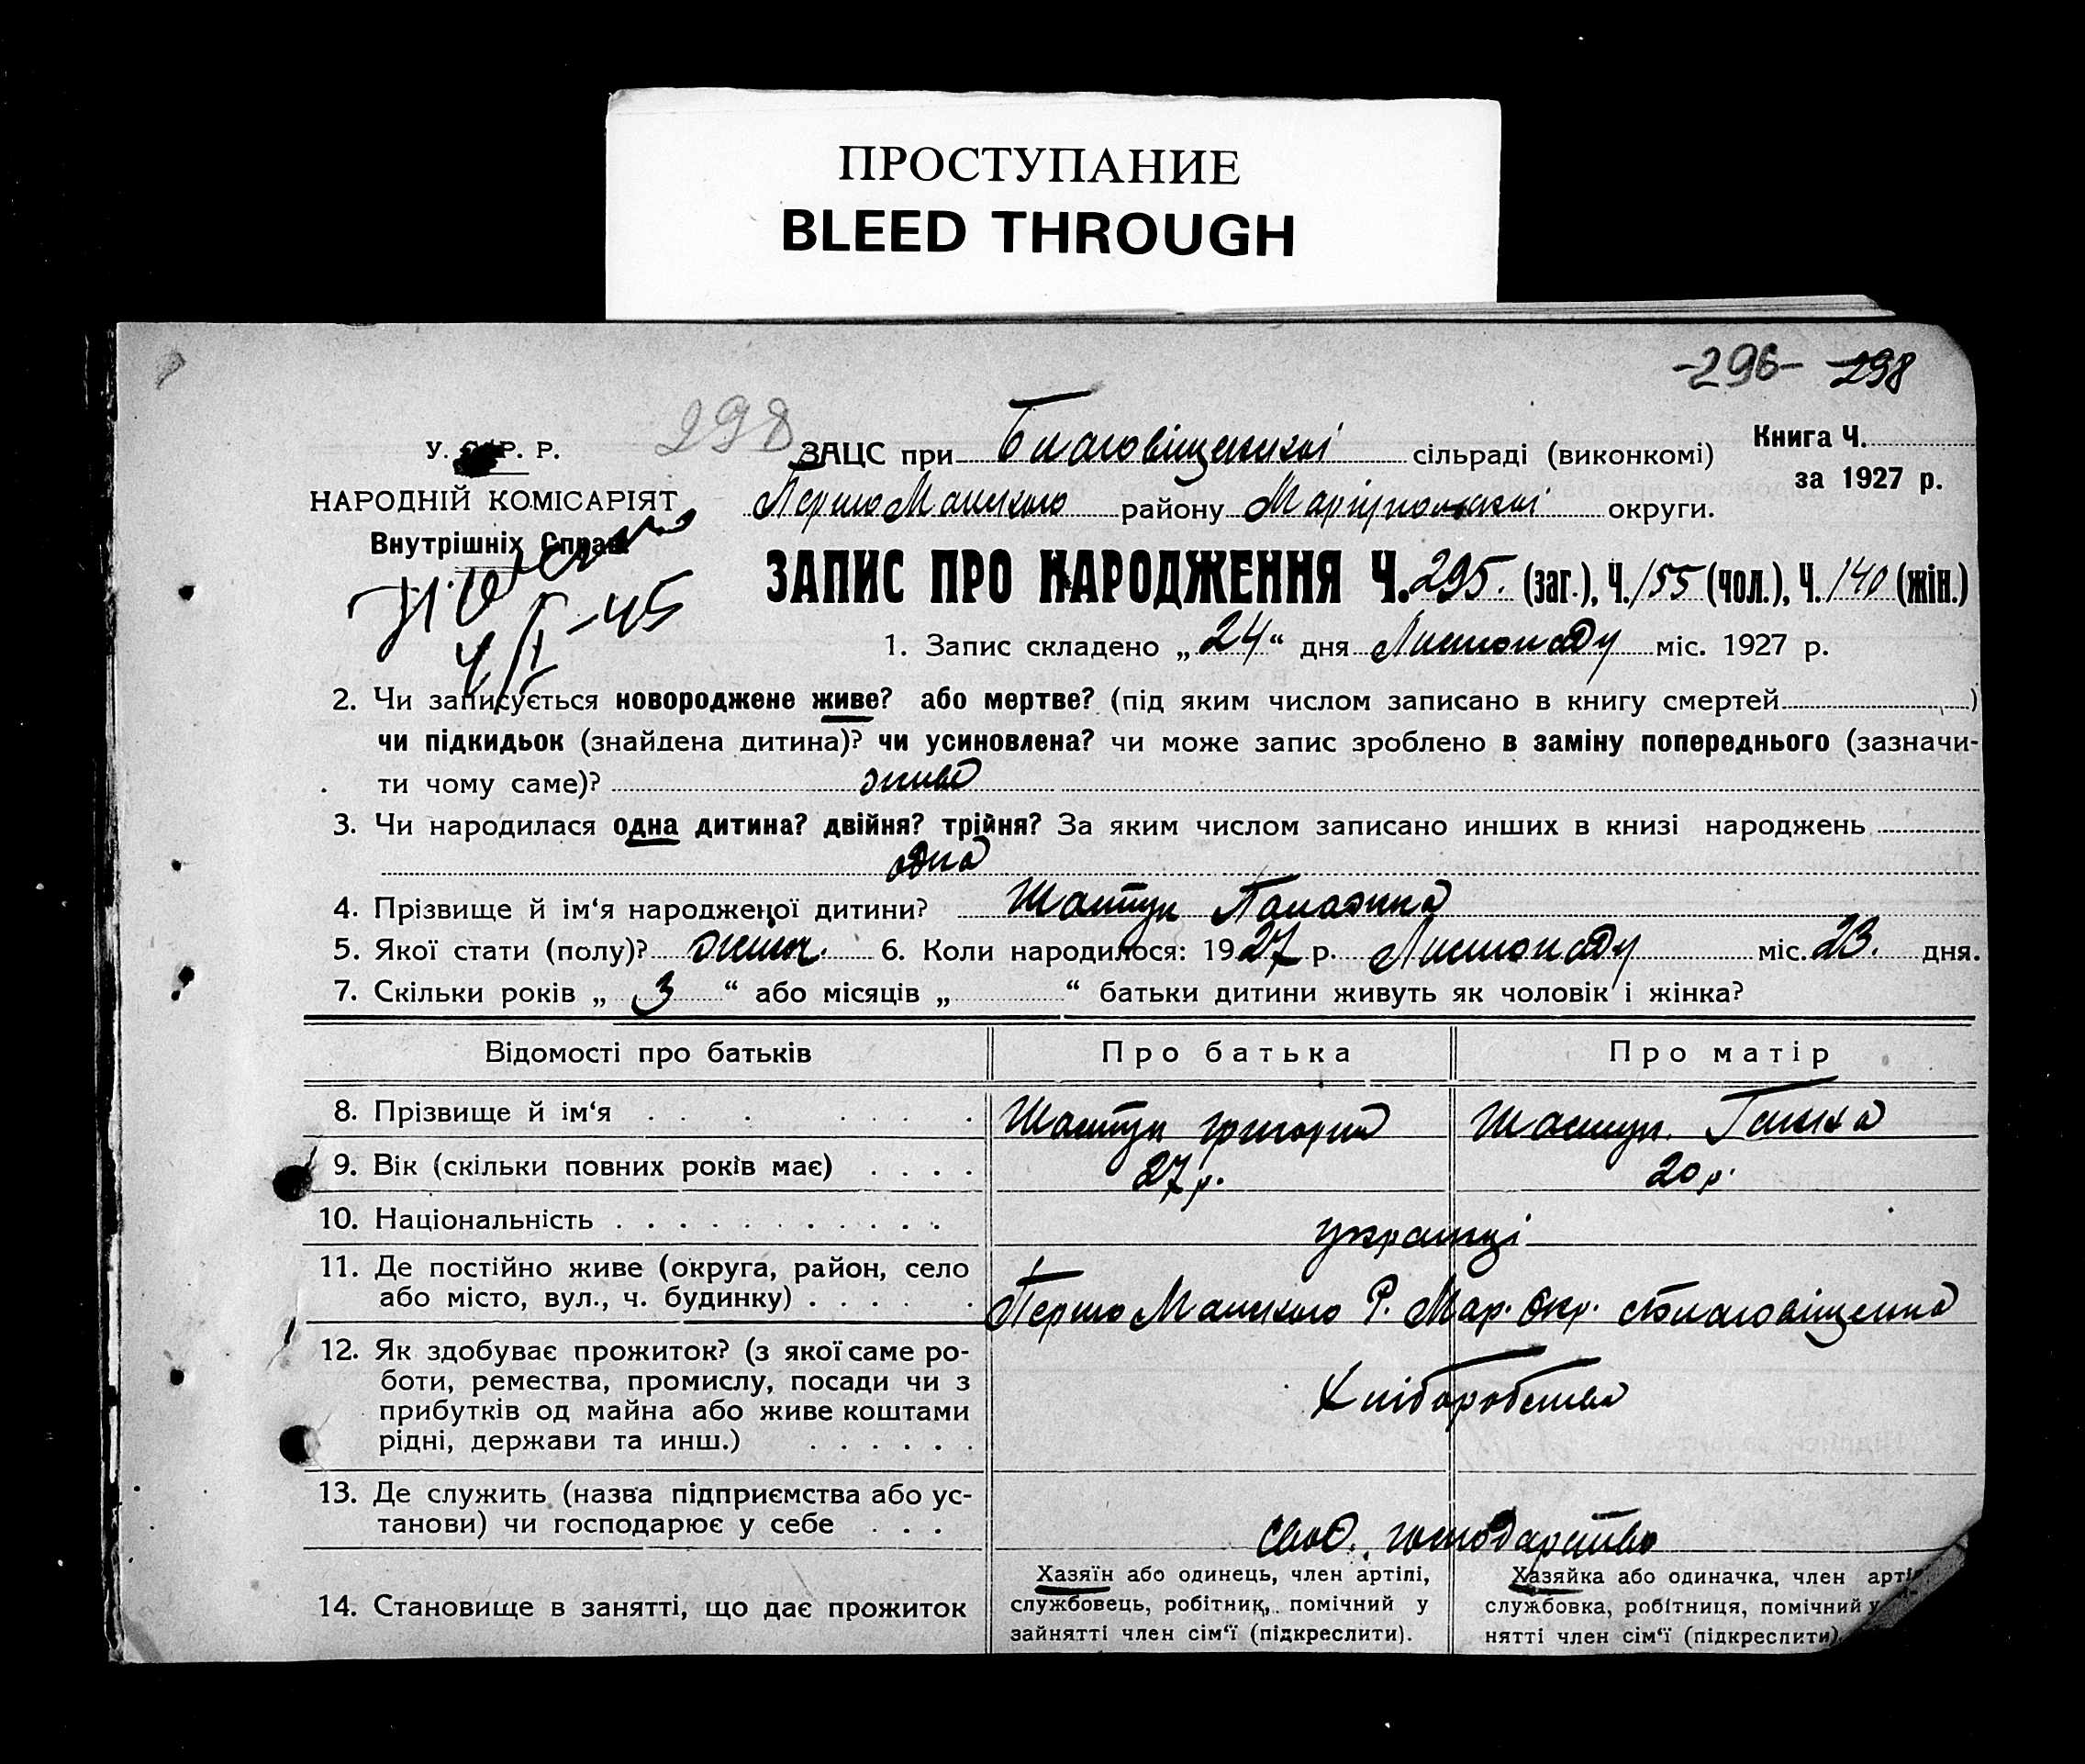 ПРОСТУПАНИЕ
BLEED THROUGH
-296- 298
298
У. С. Р. Р.
НАРОДНІЙ КОМІСАРІЯТ
Внутрішніх Справ
4/I-45
ЗАЦС при Благовіщенській сільраді (виконкомі)
Книга Ч.
за 1927 р.
Першо Манського району Маріупольської округи.
ЗАПИС ПРО НАРОДЖЕННЯ Ч. 295. (заг.), Ч. 155 (чол.), Ч. 140 (жін.)
1. Запис складено „24“ дня Листопаду міс. 1927 р.
2. Чи записується новороджене живе? або мертве? (під яким числом записано в книгу смертей )
чи підкидьок (знайдена дитина)? чи усиновлена? чи може запис зроблено в заміну попереднього (зазначи-
ти чому саме)? живе
3. Чи народилася одна дитина? двійня? трійня? За яким числом записано инших в книзі народжень
одна
4. Прізвище й ім‘я народженої дитини? Шаптун
5. Якої стати (полу)? жіноч. 6. Коли народилося: 1927 р. Листопаду міс. 23. дня.
7. Скільки років „ 3 “ або місяців „ “ батьки дитини живуть як чоловік і жінка?
Відомості про батьків
Про батька
Про матір
8. Прізвище й ім‘я . . . . . . .
Шаптун Григорій
Шаптун Ганна
9. Вік (скільки повних років має) . . . .
27 р.
20 р.
10. Національність . . . . . . . . . . .
українці
11. Де постійно живе (округа, район, село
або місто, вул., ч. будинку) . . . . . .
Першо Манського Р. Мар. Окр. с Благовіщенка
12. Як здобуває прожиток? (з якої саме ро-
боти, ремества, промислу, посади чи з
прибутків од майна або живе коштами
рідні, держави та инш.) . . . . . .
Хліборобство
13. Де служить (назва підприємства або ус-
танови) чи господарює у себе . . .
своє господарство
14. Становище в занятті, що дає прожиток
Хазяїн або одинець, член артілі,
службовець, робітник, помічний у
зайнятті член сім‘ї (підкреслити).
Хазяйка або одиначка, член арті
службовка, робітниця, помічний у
нятті член сім‘ї (підкреслити)